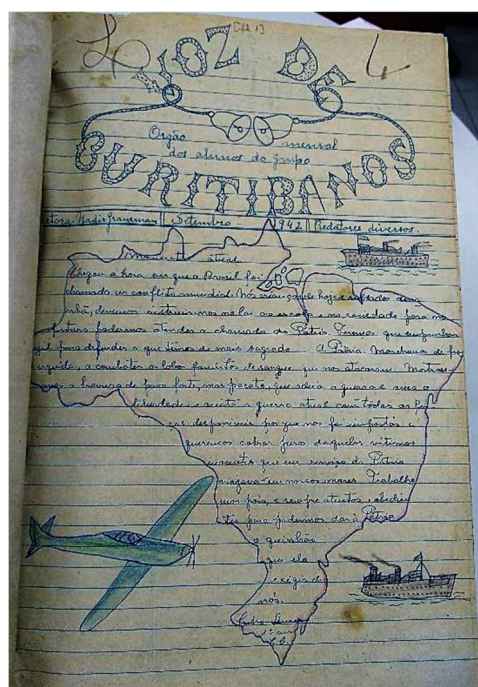 A VOZ DE
CURITIBANOS
Orgão mensal
dos alunos do grupo
Nadir Franeman || Setembro 1942 || Redatores diversos.
Momento atual
Chegou a hora em que o Brasil foi
chamado ao conflito mundial. Nós crianças de hoje e soldado da ama-
nhã, devemos instruir-nos melhor na escola e na sociedade para no
futuro podermos atender a chamado da Pátria. Teremos que empunhar o fu-
zil para defender a que temos de mais sagrado. A Pátria. Marchemos de fu-
a combater os lobos famintos de sangue que nos atacaram.
a herança de povo forte, mas pacato, que odeia a guerra e ama a
liberdade e aceita a guerra atual com todas as for-
ças disponiveis por que nos foi imposta e
queremos cobrar juros daquelas vitimas
inocentes que em serviço da Pátria
navegava em nossos mares. Trabalhe-
mos pois, e sempre atentos e obedien-
tes para podermos dar á Pátria
o quinhão
que ela
exigir de
nós.